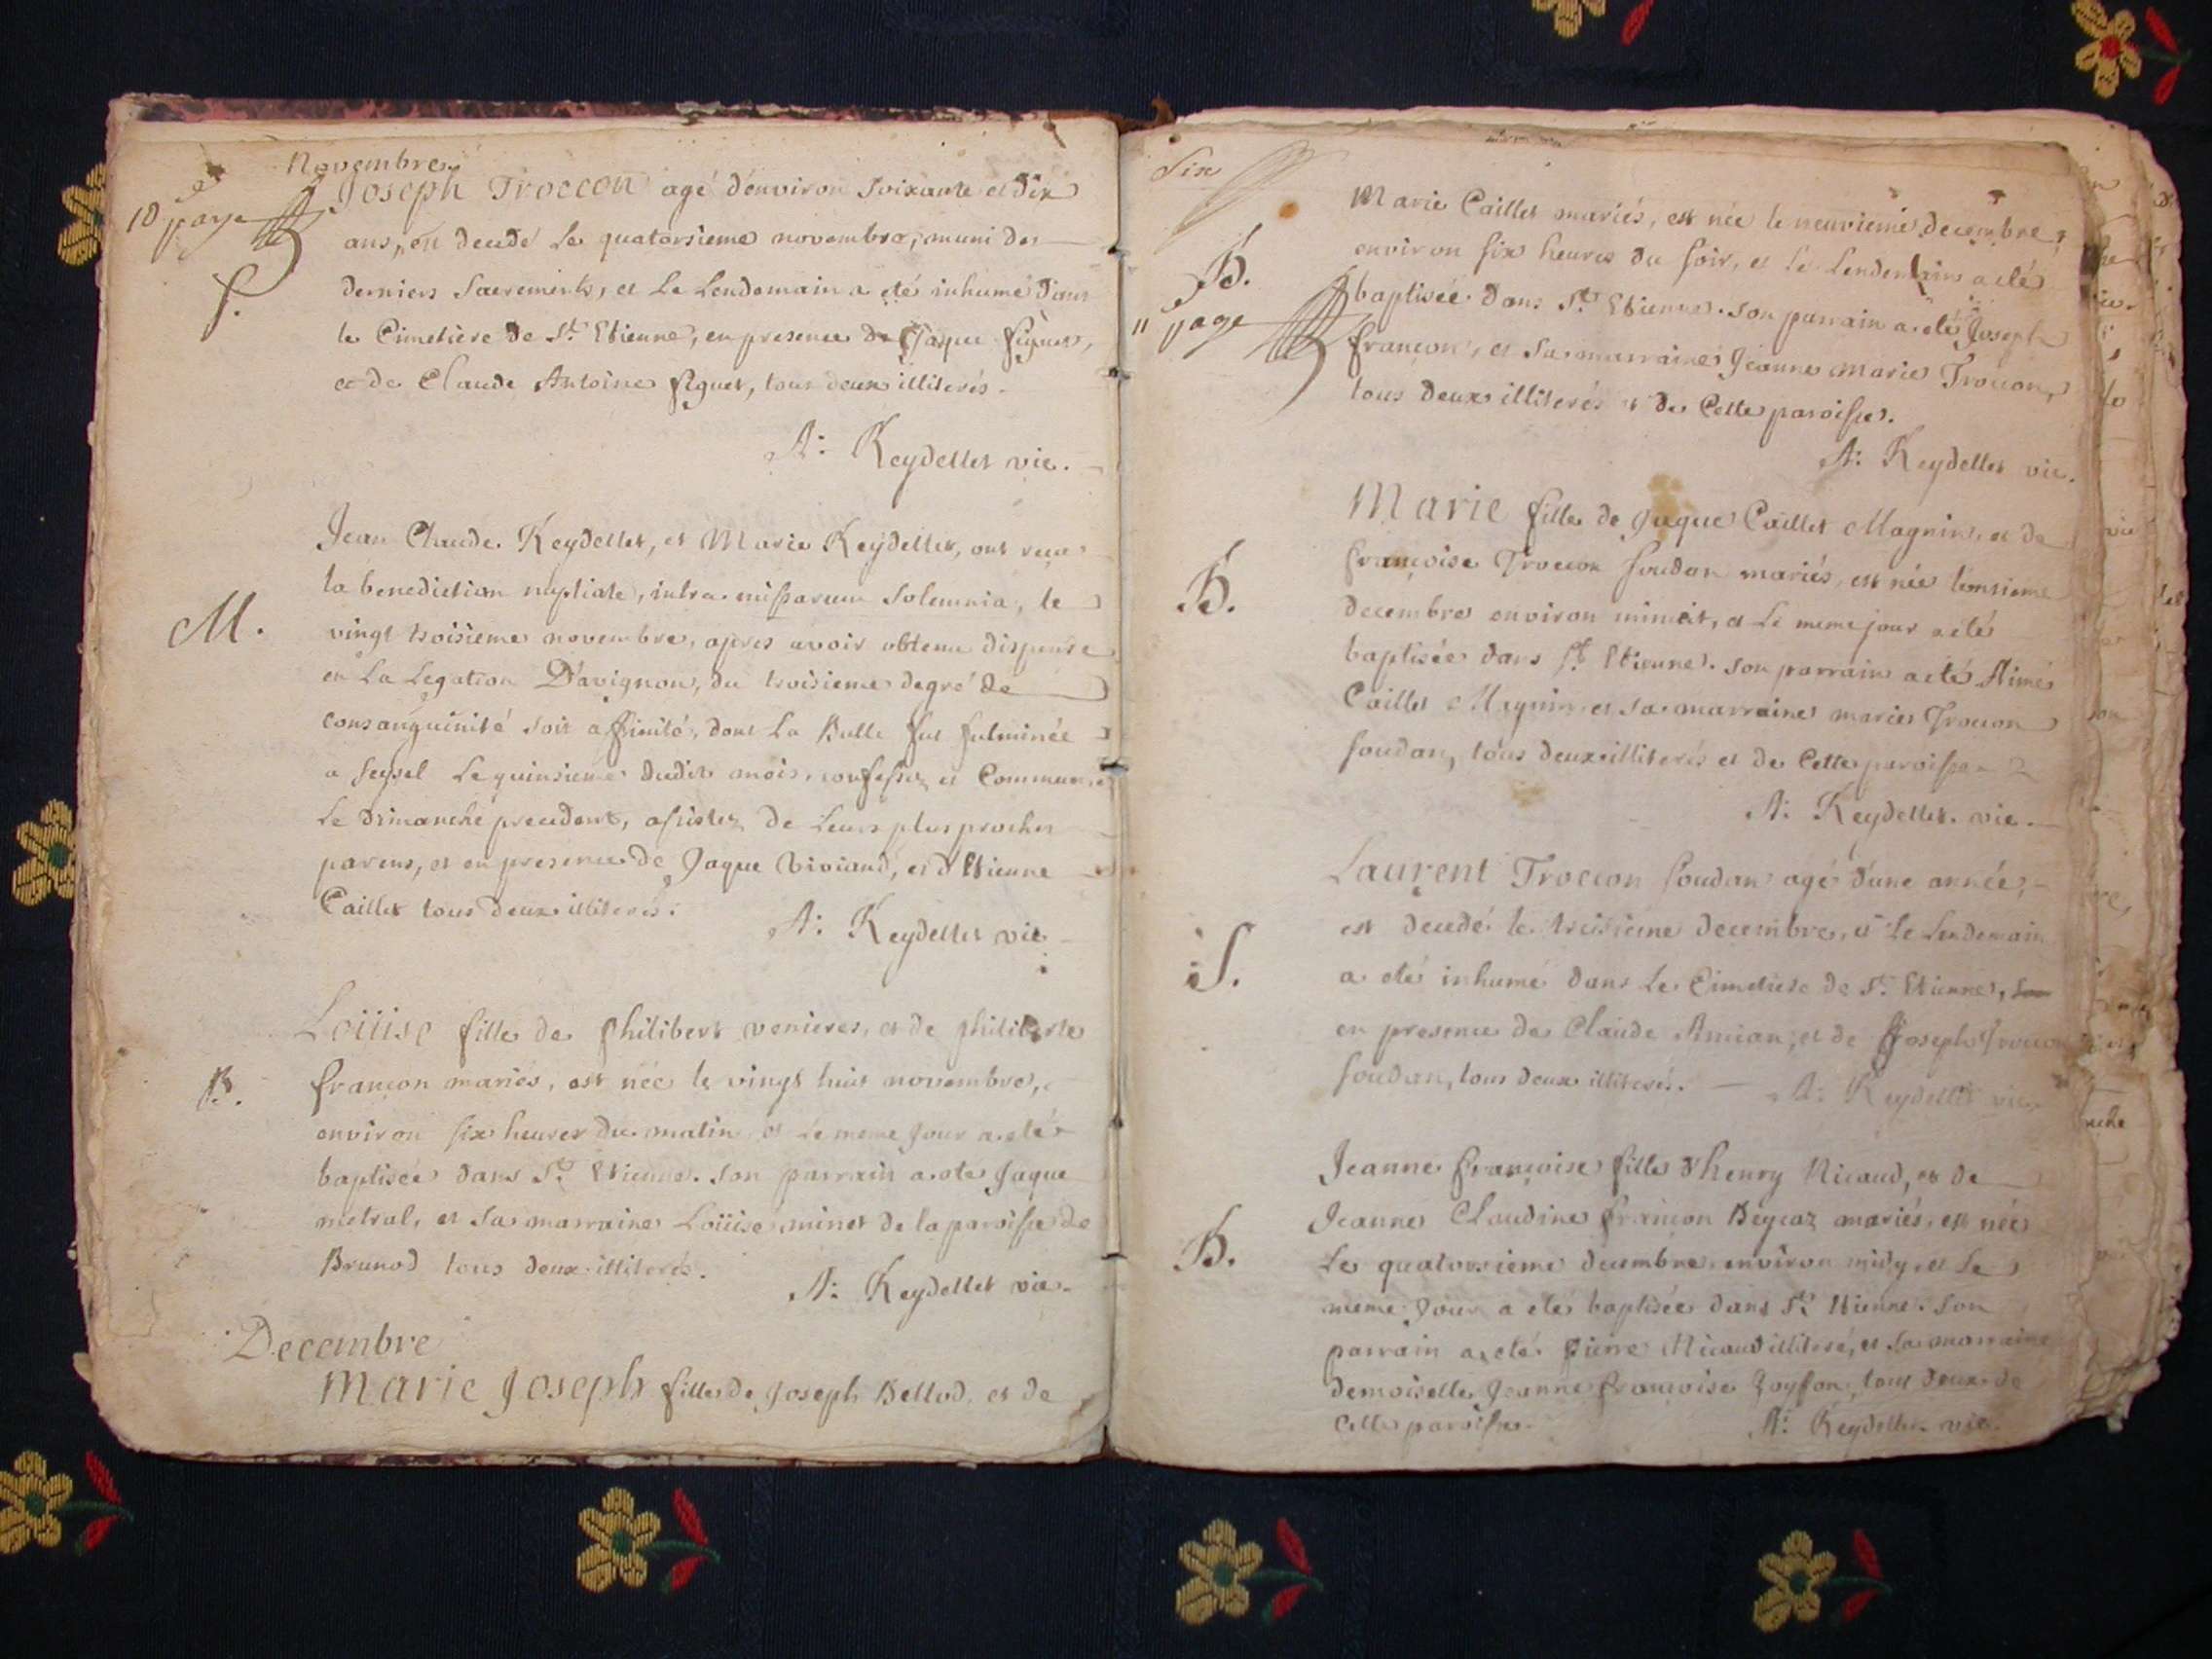 Novembre
10 page
Joseph Troccon agé d'environ soixante et dix
ans, est decedé le quatorsieme novembre, muni des
S.
derniers sacrements, et le lendemain a eté inhumé dans
le Cimetière de St. Etienne, en presence de Jaque figuet,
et de Claude Antoine figuet, tous deux illiterés.
A: Keydellet vic.
Jean Claude Keydellet, et Marie Keydellet, ont reçu
la benediction nuptiale, intra missarum solemnia, le
M.
vingt troisieme novembre, apres avoir obtenu dispense
en la Legation D'avignon, du troisieme degré de
consanguinité soit affinité, dont la Bulle fut fulminée
a seysel le quinsieme dudit mois, confessez et Communiez
le dimanche precedent, assistez de leurs plus proches
parens, et en presence de Jaque Viviand, et d'Etienne
Caillet tous deux illiterés.
A: Keydellet vic
Loüise fille de philibert venieres, et de philiberte
B.
françon mariés, est née le vingt huit novembre,
environ six heures du matin et le meme jour a eté
baptisée dans St. Etienne. son parrain a eté Jaque
metral, et sa marraine Loüise minet de la paroisse de
Brunod tous deux illiterés.
A: Keydellet vic.
Decembre
Marie Joseph fille de Joseph Bellod, et de
Six
Marie Caillet mariés, est née le neuvieme decembre,
B.
environ six heures du soir, et le lendemain a eté
11 page
baptisée dans St. Etienne. son parrain a eté Joseph
françon, et sa marraine Jeanne marie Troccon,
tous deux illiterés et de Cette paroisse.
A: Keydellet vic.
Marie fille de Jaque Caillet Magnin, et de
françoise Troccon soudan mariés, est née l'onsieme
B.
decembre environ minuit, et le meme jour a eté
baptisée dans St. Etienne. son parrain a eté Aimé
Caillet Magnin et sa marraine marie Troccon
soudan, tous deux illiterés et de Cette paroisse
A: Keydellet vic.
Laurent Troccon soudan agé d'une année,
est decedé le treisieme decembre, et le lendemain
S.
a eté inhumé dans le Cimetiere de St. Etienne,
en presence de Claude Amian, et de Joseph Troccon
soudan, tous deux illiterés.
A: Keydellet vic.
Jeanne françoise fille d'henry Nicaud, et de
Jeanne Claudine françon Begcaz mariés, est née
B.
le quatorsieme decembre, environ midy, et le
meme jour a eté baptisée dans St. Etienne. son
parrain a eté pierre Nicaud illiteré, et sa marraine
demoiselle Jeanne françoise tous deux de
Cette paroisse.
A: Keydellet vic.